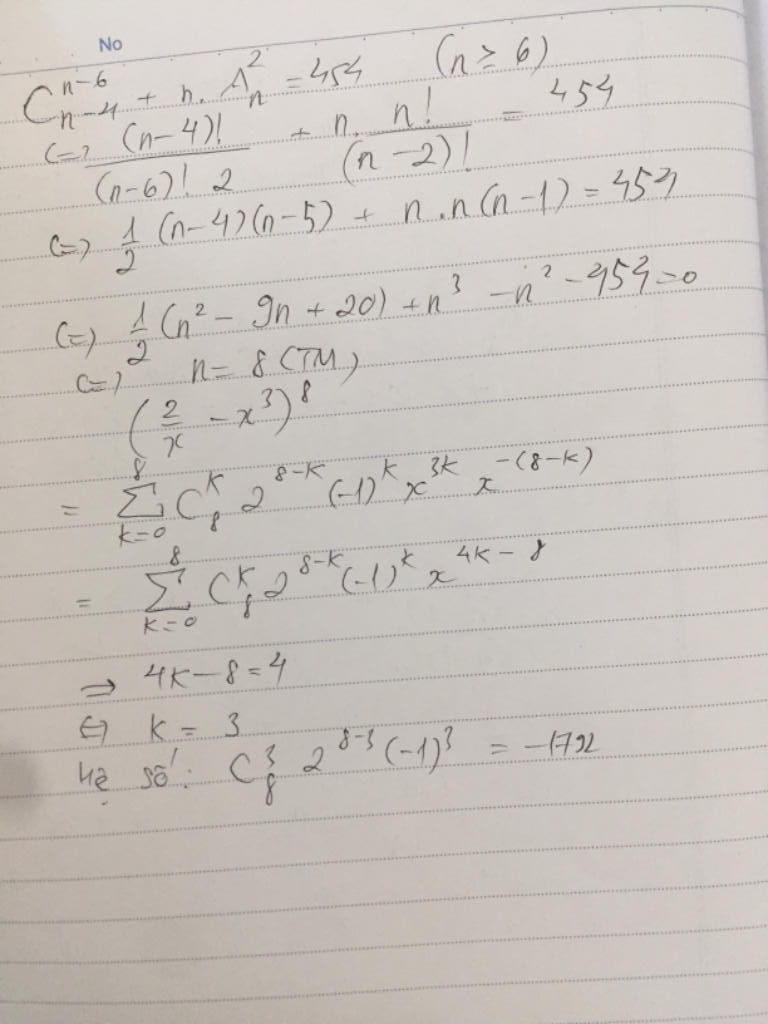 No
C_{n-4}^{n-6} + n. A_n^2 = 454 (n ≥ 6)
<=> \frac{(n-4)!}{(n-6)! 2} + n. \frac{n!}{(n-2)!} = 454
<=> \frac{1}{2} (n-4)(n-5) + n.n(n-1) = 454
<=> \frac{1}{2} (n^2 - 9n + 20) + n^3 - n^2 - 454 = 0
<=> n = 8 (TM)
(\frac{2}{x} - x^3)^8
= \sum_{k=0}^{8} C_8^k 2^{8-k} (-1)^k x^{3k} x^{-(8-k)}
= \sum_{k=0}^{8} C_8^k 2^{8-k} (-1)^k x^{4k-8}
⇒ 4k - 8 = 4
⇔ k = 3
Hệ số: C_8^3 2^{8-3} (-1)^3 = -1792